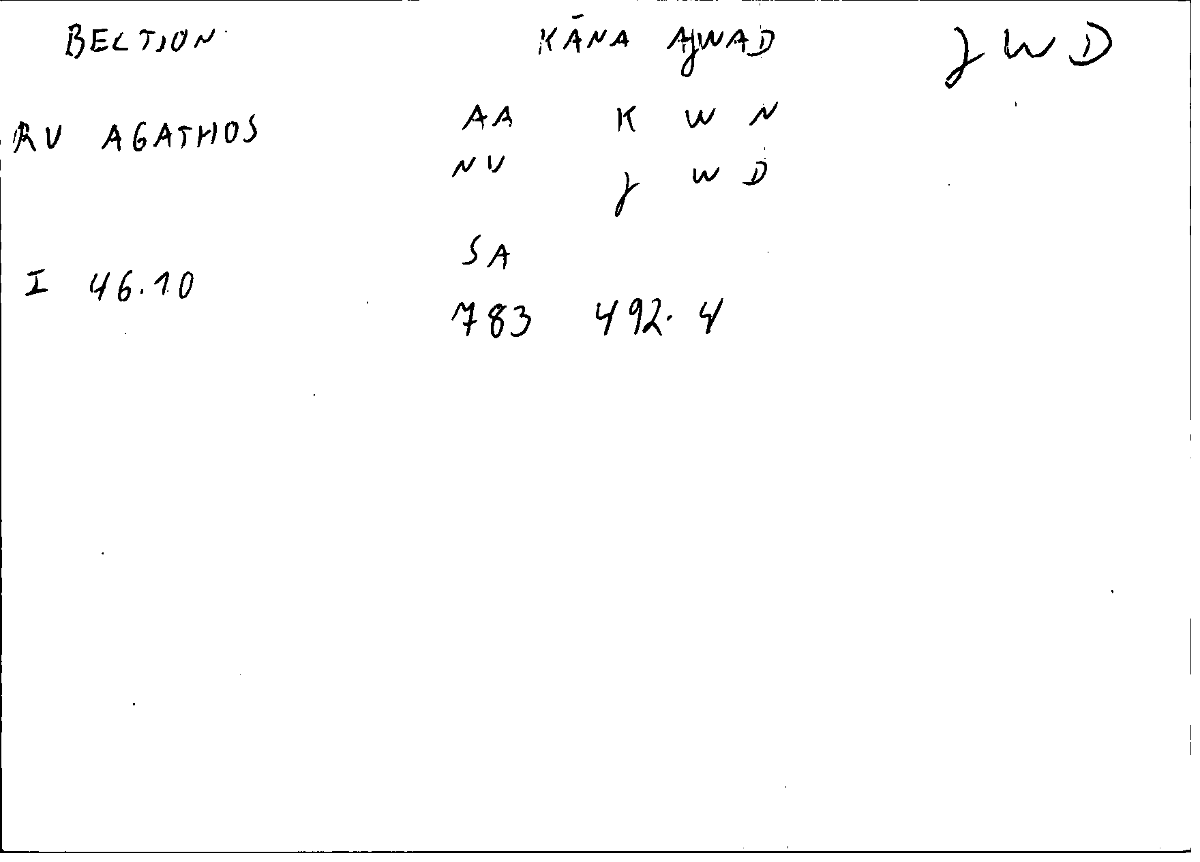 BECTION KĀNA AJWAD JWD
RU AGATHOS AA K W N
NU J W D
SA
I 46.10
783 492.4